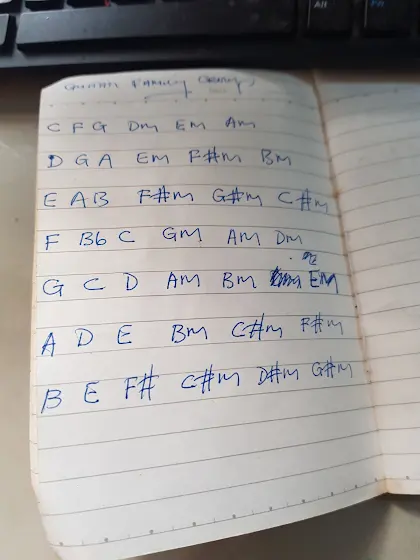 GUITAR FAMILY CHORDS
C F G Dm Em Am
D G A Em F#m Bm
E A B F#m G#m C#m
F Bb C Gm Am Dm
G C D Am Bm Em
A D E Bm C#m F#m
B E F# C#m D#m G#m